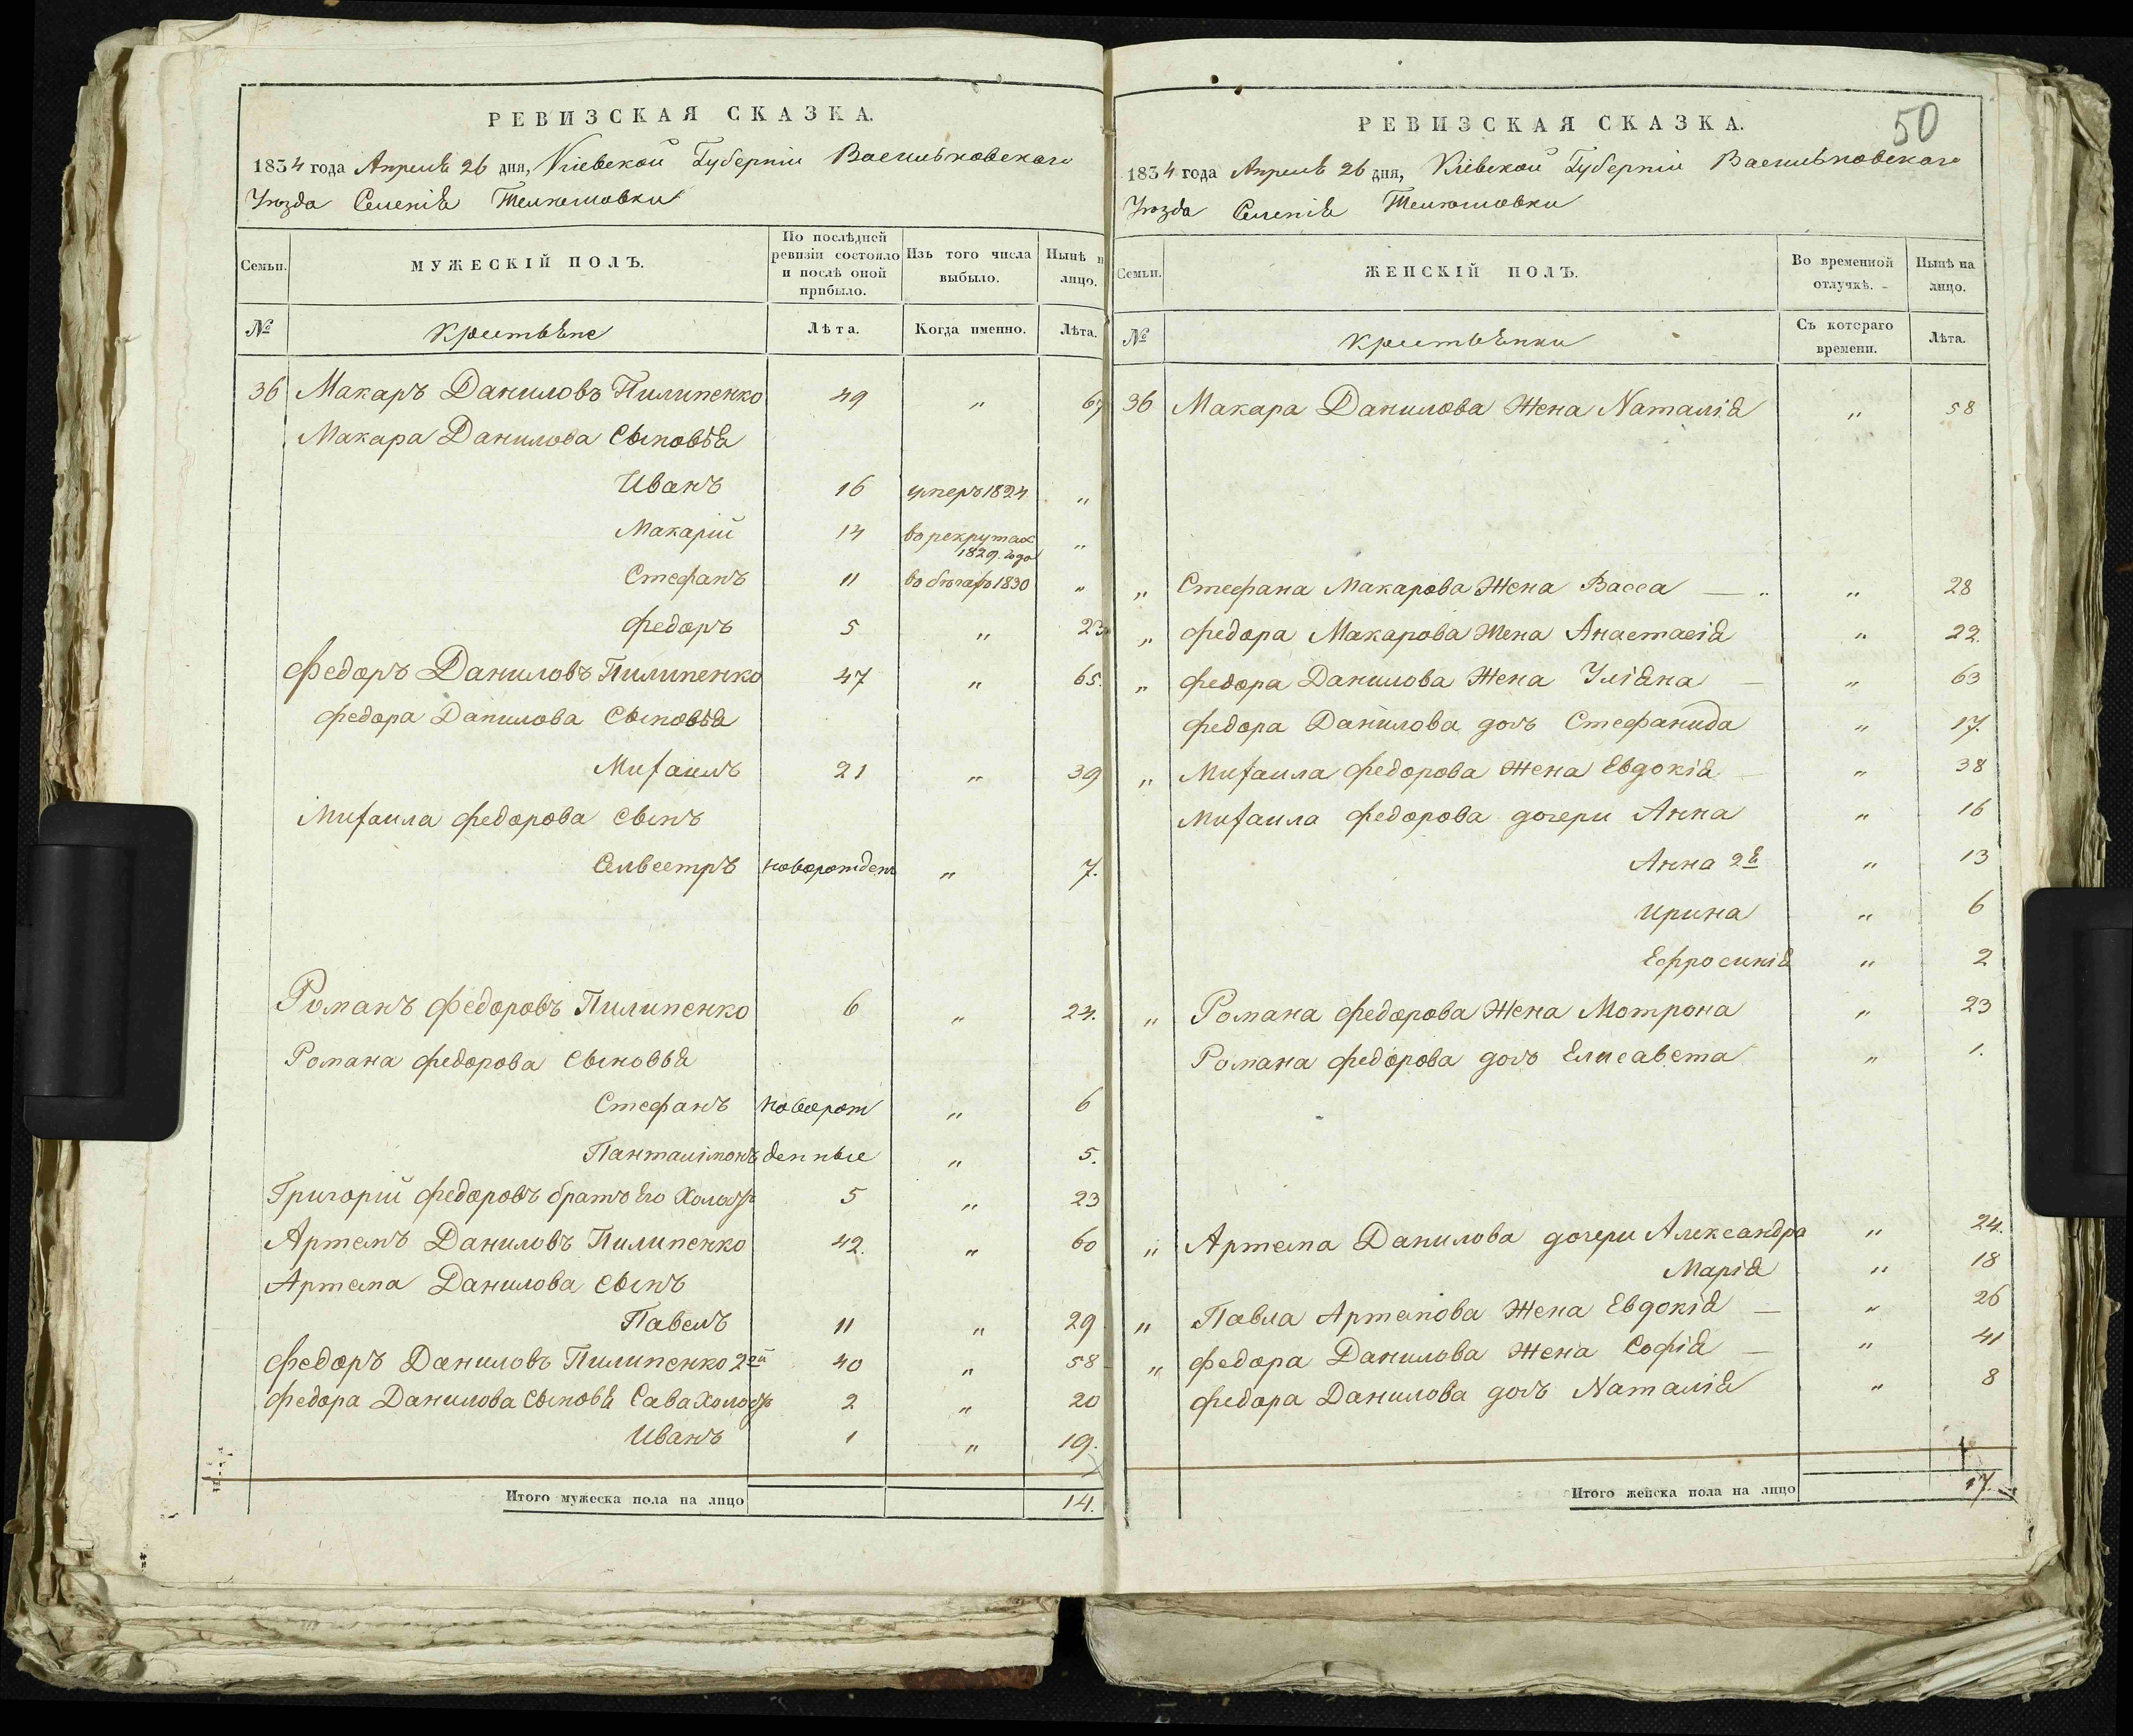 РЕВИЗСКАЯ СКАЗКА.
1834 года Апреля 26 дня, Кіевской Губерніи Васильковского
Уѣзда Селенія Телюшовки
Семьи.
МУЖЕСКІЙ ПОЛЪ.
По послѣдней ревизіи состояло и послѣ оной прибыло.
Изъ того числа выбыло.
Нынѣ н лицо.
№ Крестьяне Лѣта. Когда именно. Лѣта.
36 Макаръ Даниловъ Пилипенко 49 " 67
Макара Данилова Сыновья
Иванъ 16 умеръ 1824 "
Макарій 14 в рекрутах 1829. года "
Стефанъ 11 в бѣгахъ 1830 "
Федоръ 5 " 23
Федоръ Даниловъ Пилипенко 47 " 65.
Федора Данилова Сыновья
Михаилъ 21 " 39
Михаила Федорова Сынъ
Селвестръ новорожден " 7.
Романъ Федоровъ Пилипенко 6 " 24.
Романа Федорова Сыновья
Стефанъ новорож " 6
Панталімонъ денные " 5.
Григорій Федоровъ братъ Его Холост 5 " 23
Артемъ Даниловъ Пилипенко 42. " 60
Артема Данилова Сынъ
Павелъ 11 " 29
Федоръ Даниловъ Пилипенко 2ой 40 " 58
Федора Данилова Сыновя Сава Холост 2 " 20
Иванъ 1 " 19.
Итого мужеска пола на лицо 14.
50
РЕВИЗСКАЯ СКАЗКА.
1834 года Апреля 26 дня, Кіевской Губерніи Васильковского
Уѣзда Селенія Телюшовки
Семьи.
ЖЕНСКІЙ ПОЛЪ.
Во временной отлучкѣ.
Нынѣ на лицо.
№ Крестьянки Съ котораго времени. Лѣта.
36 Макара Данилова Жена Наталія " 58
" Стефана Макарова Жена Васса " 28
" Федора Макарова Жена Анастасія " 22.
" Федора Данилова Жена Уліяна " 63
Федора Данилова доч Стефанида " 17.
" Михаила Федорова Жена Евдокія " 38
Михаила Федорова дочери Анна " 16
Анна 2я " 13
Ирина " 6
Ефросинія " 2
" Романа Федорова Жена Мотрона " 23
Романа Федорова доч Елисавета " 1.
" Артема Данилова дочери Александра " 24.
Марія " 18
" Павла Артемова Жена Евдокія " 26
" Федора Данилова Жена Софія " 41
Федора Данилова доч Наталія " 8
Итого женска пола на лицо 17.